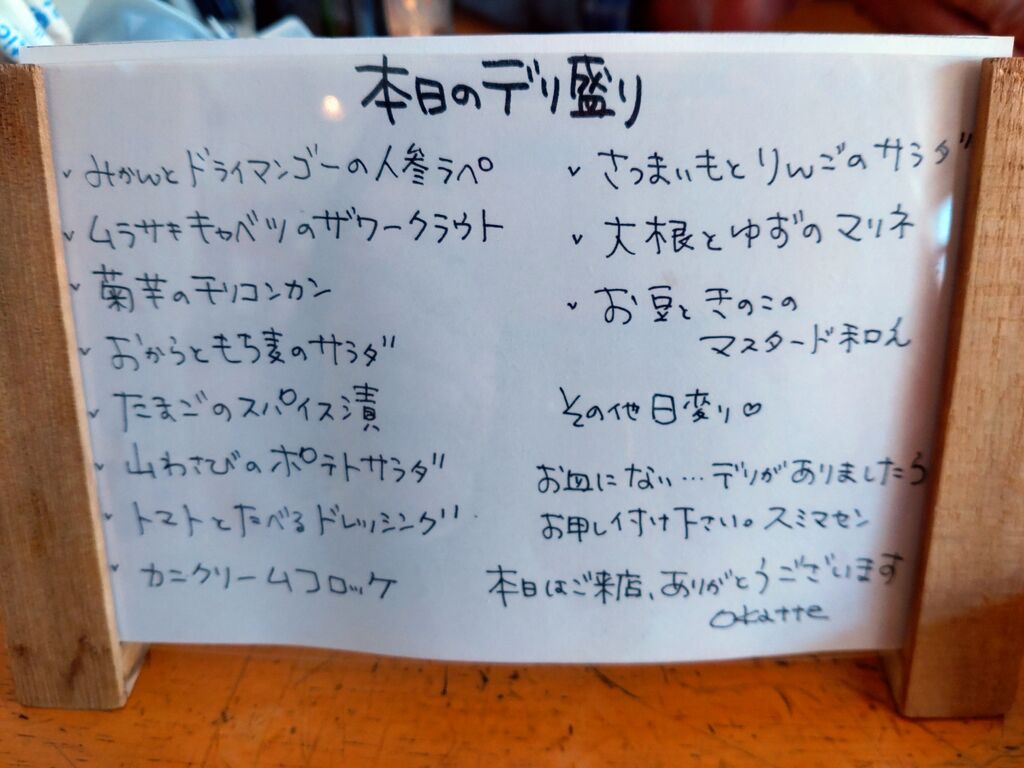 本日のデリ盛り
✓ みかんとドライマンゴーの人参ラペ
✓ ムラサキキャベツのザワークラウト
✓ 菊芋のチリコンカン
✓ おからともち麦のサラダ
✓ たまごのスパイス漬
✓ 山わさびのポテトサラダ
✓ トマトとたべるドレッシング
✓ カニクリームコロッケ
✓ さつまいもとりんごのサラダ
✓ 大根とゆずのマリネ
✓ お豆ときのこの
マスタード和え
その他日変り♡
お皿にない…デリがありましたら
お申し付け下さい。スミマセン
本日はご来店、ありがとうございます
okatte